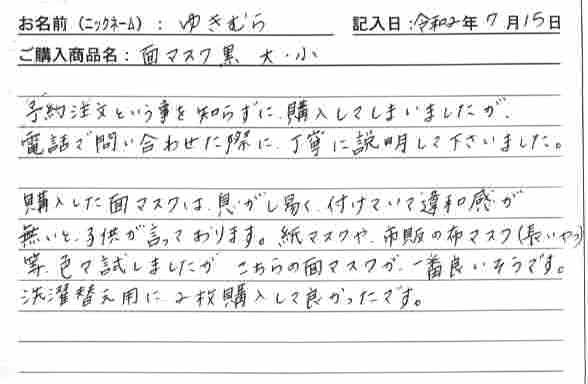 お名前（ニックネーム）： ゆきむら 記入日：令和2年7月15日
ご購入商品名：面マスク黒 大・小
予約注文という事を知らずに、購入してしまいましたが、
電話で問い合わせた際に、丁寧に説明して下さいました。
購入した面マスクは、息がし易く、付けていて違和感が
無いと、子供が言っております。紙マスクや、市販の布マスク（長いやつ）
等、色々試しましたが こちらの面マスクが、一番良いそうです。
洗濯替え用に2枚購入して良かったです。